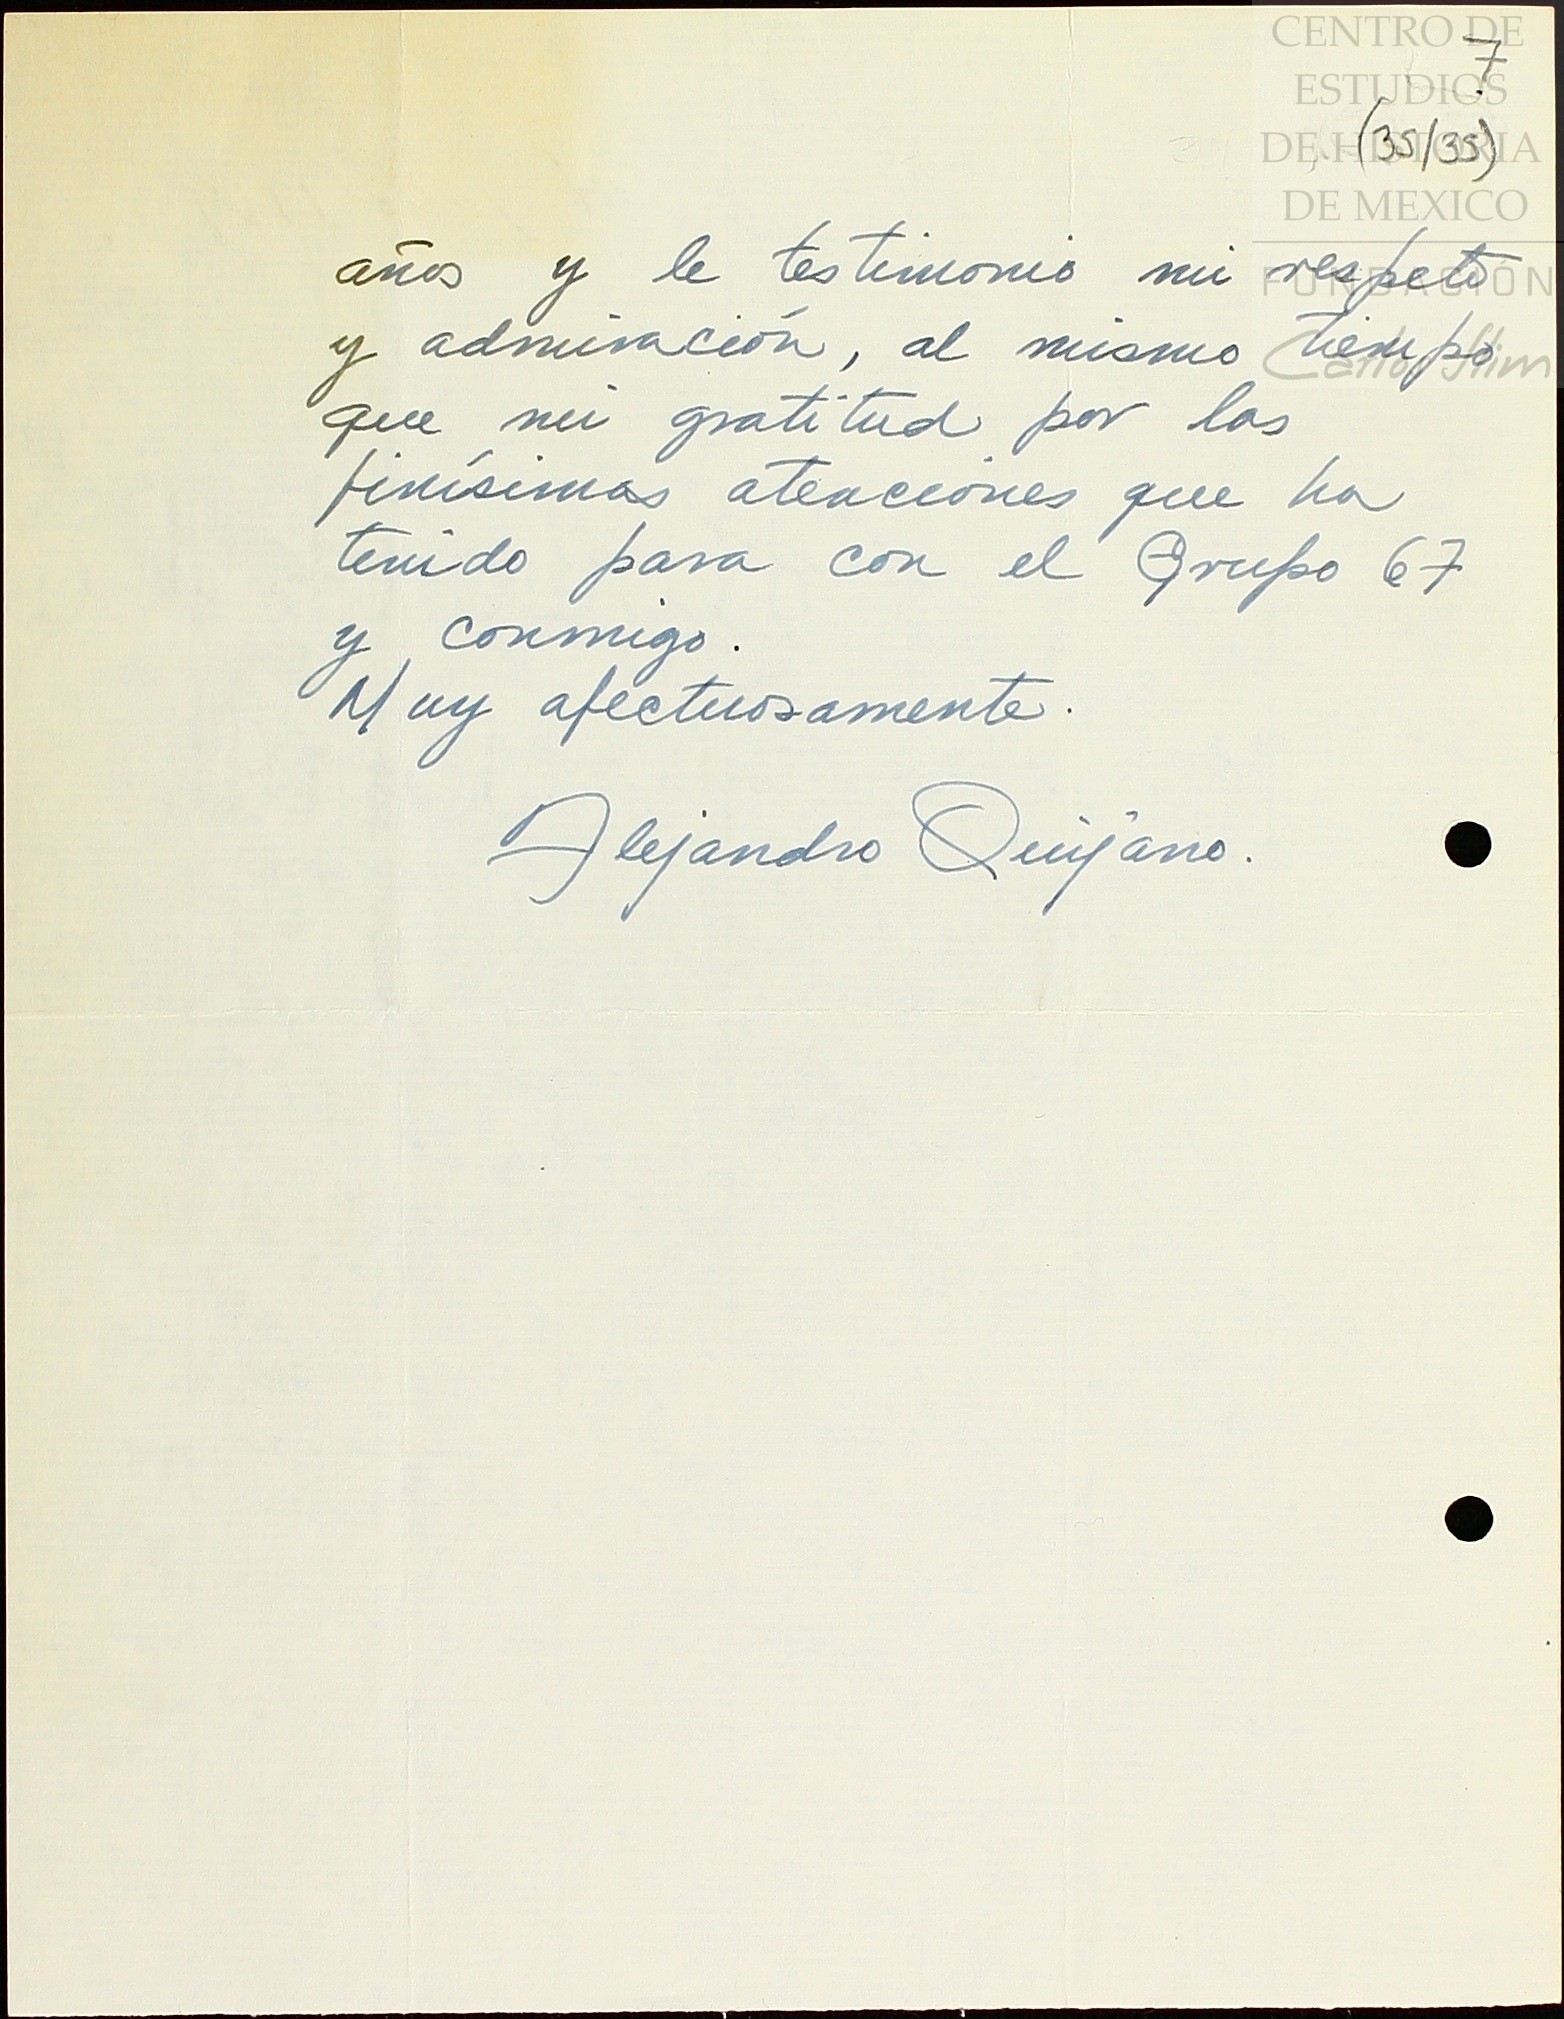 CENTRO DE
ESTUDIOS
DE HISTORIA
DE MEXICO
FUNDACIÓN
Carlos Slim
7
(35/35)
años y le testimonio mi respeto
y admiración, al mismo tiempo
que mi gratitud por las
finísimas atenciones que ha
tenido para con el Grupo 67
y conmigo.
Muy afectuosamente.
Alejandro Quijano.